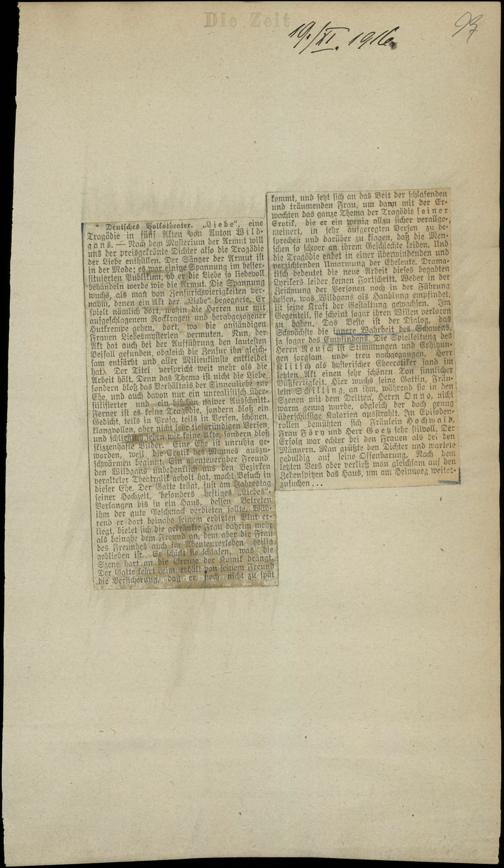 Die Zeit
19./XI. 1916.
93
* Deutsches Volkstheater. „Liebe“, eine
Tragödie in fünf Akten von Anton Wild-
gans. — Nach dem Mysterium der Armut will
uns der preisgekrönte Dichter also die Tragödie
der Liebe enthüllen. Der Sänger der Armut ist
in der Mode; es war einige Spannung im besser-
situierten Publikum, ob er die Liebe so liebevoll
behandeln werde wie die Armut. Die Spannung
wuchs, als man von Zensurschwierigkeiten ver-
nahm, denen ein Akt der „Liebe“ begegnete. Er
spielt nämlich dort, wohin die Herren nur mit
aufgeschlagenem Rockkragen und herabgezogener
Hutkrempe gehen, dort, wo die anständigen
Frauen Liebesmysterien vermuten. Nun, der
Akt hat auch bei der Aufführung den lautesten
Beifall gefunden, obgleich die Zensur ihn gleich-
sam entfärbt und aller Milieukünste entkleidet
hat. Der Titel verspricht weit mehr als die
Arbeit hält. Denn das Thema ist nicht die Liebe,
sondern bloß das Verhältnis der Sinnenliebe zur
Ehe, und auch davon nur ein
Ferner ist es keine Tragödie, sondern bloß ein
Gedicht, teils in Prosa, teils in Versen, schönen,
klangvollen, aber nicht
und
skizzenhafte Bilder. Eine Ehe ist unruhig ge-
worden, weil die Erotik des Mannes auszu-
schwärmen beginnt. Ein
den Wildgans
veralteter Theatralik geholt hat, macht Besuch in
dieser Ehe. Der Gatte trägt, just am Jahrestag
seiner Hochzeit, besonders heftiges „Liebes“-
Verlangen bis in ein Haus, dessen Betreten
ihm der gute Geschmack verbieten sollte. Wäh-
rend er dort beinahe seinem erhitzten Blut er-
liegt, bietet sich die gekränkte Frau daheim mehr
als beinahe dem Freund an, dem aber die Frau
des Freundes auch im
geblieben ist. Sie schickt sie schlafen, was die
Szene hart an die Grenze der Komik drängt.
Der Gatte kehrt heim, erhält von seinem Freund
die Versicherung, daß er noch nicht zu spät
kommt, und setzt sich an das Bett der schlafenden
und träumenden Frau, um dann mit der Er-
wachten das ganze Thema der Tragödie seiner
Erotik, die er ein wenig allzu sicher verallge-
meinert, in sehr aufgeregten Versen zu be-
sprechen und darüber zu klagen, daß die Men-
schen so schwer an ihrem Geschlechte leiden. Und
die Tragödie endet in einer überwindenden und
verzeihenden Umarmung der Eheleute. Drama-
tisch bedeutet die neue Arbeit dieses begabten
Lyrikers leider keinen Fortschritt. Weder in der
Zeichnung der Personen noch in der Führung
dessen, was Wildgans als Handlung empfindet,
ist seine Kraft der Gestaltung gewachsen. Im
Gegenteil, sie scheint sogar ihren Willen verloren
zu haben. Das Beste ist der Dialog, das
Schwächste die innere Wahrheit des Schauens,
ja sogar des Empfindens. Die Spielleitung des
Herrn Reusch ist Stimmungen und Schwun-
gen sorgsam und treu nachgegangen. Herr
Klitsch als hysterischer Eheerotiker fand im
letzten Akt einen sehr schönen Ton sinnlicher
Bußfertigkeit. Hier wuchs seine Gattin, Fräu-
lein Schilling, an ihm, während sie in den
Szenen mit dem Dritten, Herrn Onno, nicht
warm genug wurde, obgleich der doch genug
überschüssige Kalorien ausstrahlt. In Episoden-
rollen bemühten sich Fräulein Hochwald,
Frau Föry und Herr Goetz sehr stilvoll. Der
Erfolg war echter bei den Frauen als bei den
Männern. Man grüßte den Dichter und wartete
geduldig auf seine Offenbarung. Nach dem
letzten Vers aber verließ man gleichsam auf den
Zehenspitzen das Haus, um am Heimweg weiter-
zusuchen ...